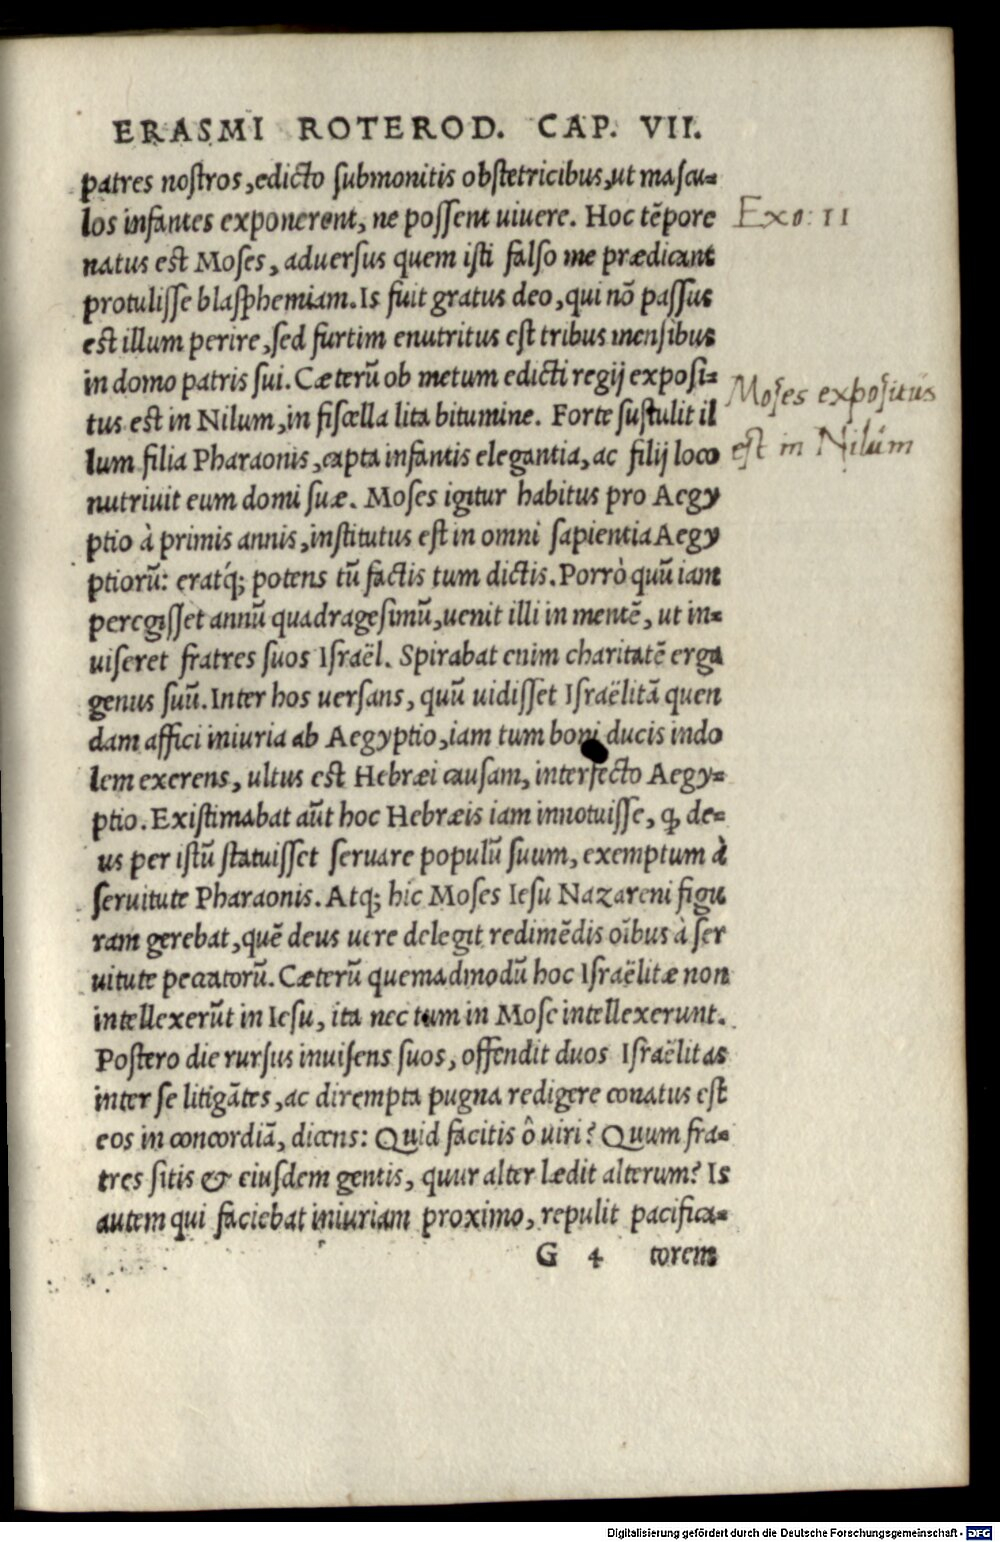 ERASMI ROTEROD. CAP. VII.
patres nostros, edicto submonitis obstetricibus, ut mascu-
los infantes exponerent, ne possent uiuere. Hoc tēpore
Exo: 11
natus est Moses, aduersus quem isti falso me prædicant
protulisse blasphemiam. Is fuit gratus deo, qui nō passus
est illum perire, sed furtim enutritus est tribus mensibus
in domo patris sui. Cæterū ob metum edicti regij exposi-
tus est in Nilum, in fiscella lita bitumine. Forte sustulit il
Moses expositus
est in Nilum
lum filia Pharaonis, capta infantis elegantia, ac filij loco
nutriuit eum domi suæ. Moses igitur habitus pro Aegy
ptio à primis annis, institutus est in omni sapientia Aegy
ptiorū: eratq́; potens tū factis tum dictis. Porrò quū iam
peregisset annū quadragesimū, uenit illi in mentē, ut in-
uiseret fratres suos Israël. Spirabat enim charitatē erga
genus suū. Inter hos uersans, quū uidisset Israëlitā quen
dam affici iniuria ab Aegyptio, iam tum boni ducis indo
lem exerens, ultus est Hebræi causam, interfecto Aegy-
ptio. Existimabat aūt hoc Hebræis iam innotuisse, ꝙ de-
us per istū statuisset seruare populū suum, exemptum à
seruitute Pharaonis. Atq; hic Moses Iesu Nazareni figu
ram gerebat, quē deus uere delegit redimēdis oībus à ser
uitute peccatorū. Cæterū quemadmodū hoc Israëlitæ non
intellexerūt in Iesu, ita nec tum in Mose intellexerunt.
Postero die rursus inuisens suos, offendit duos Israëlitas
inter se litigātes, ac dirempta pugna redigere conatus est
eos in concordiā, dicens: Quid facitis ô uiri? Quum fra-
tres sitis & eiusdem gentis, quur alter lædit alterum? Is
autem qui faciebat iniuriam proximo, repulit pacifica-
G 4 torem
Digitalisierung gefördert durch die Deutsche Forschungsgemeinschaft - DFG